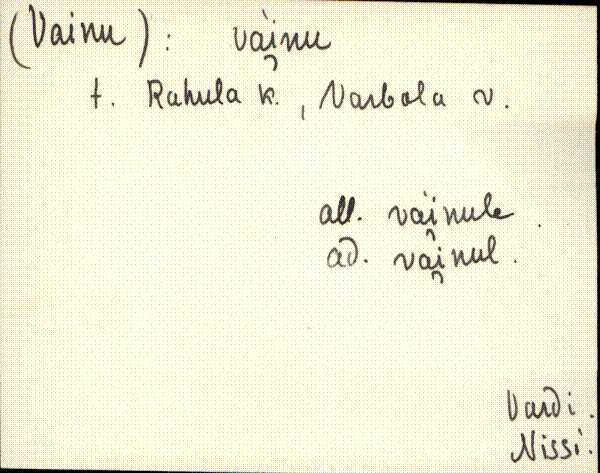 (Vainu): vài̯nu
t. Rahula k., Varbola v.
all. vài̯nule.
ad. vài̯nul.
Vardi.
Nissi.